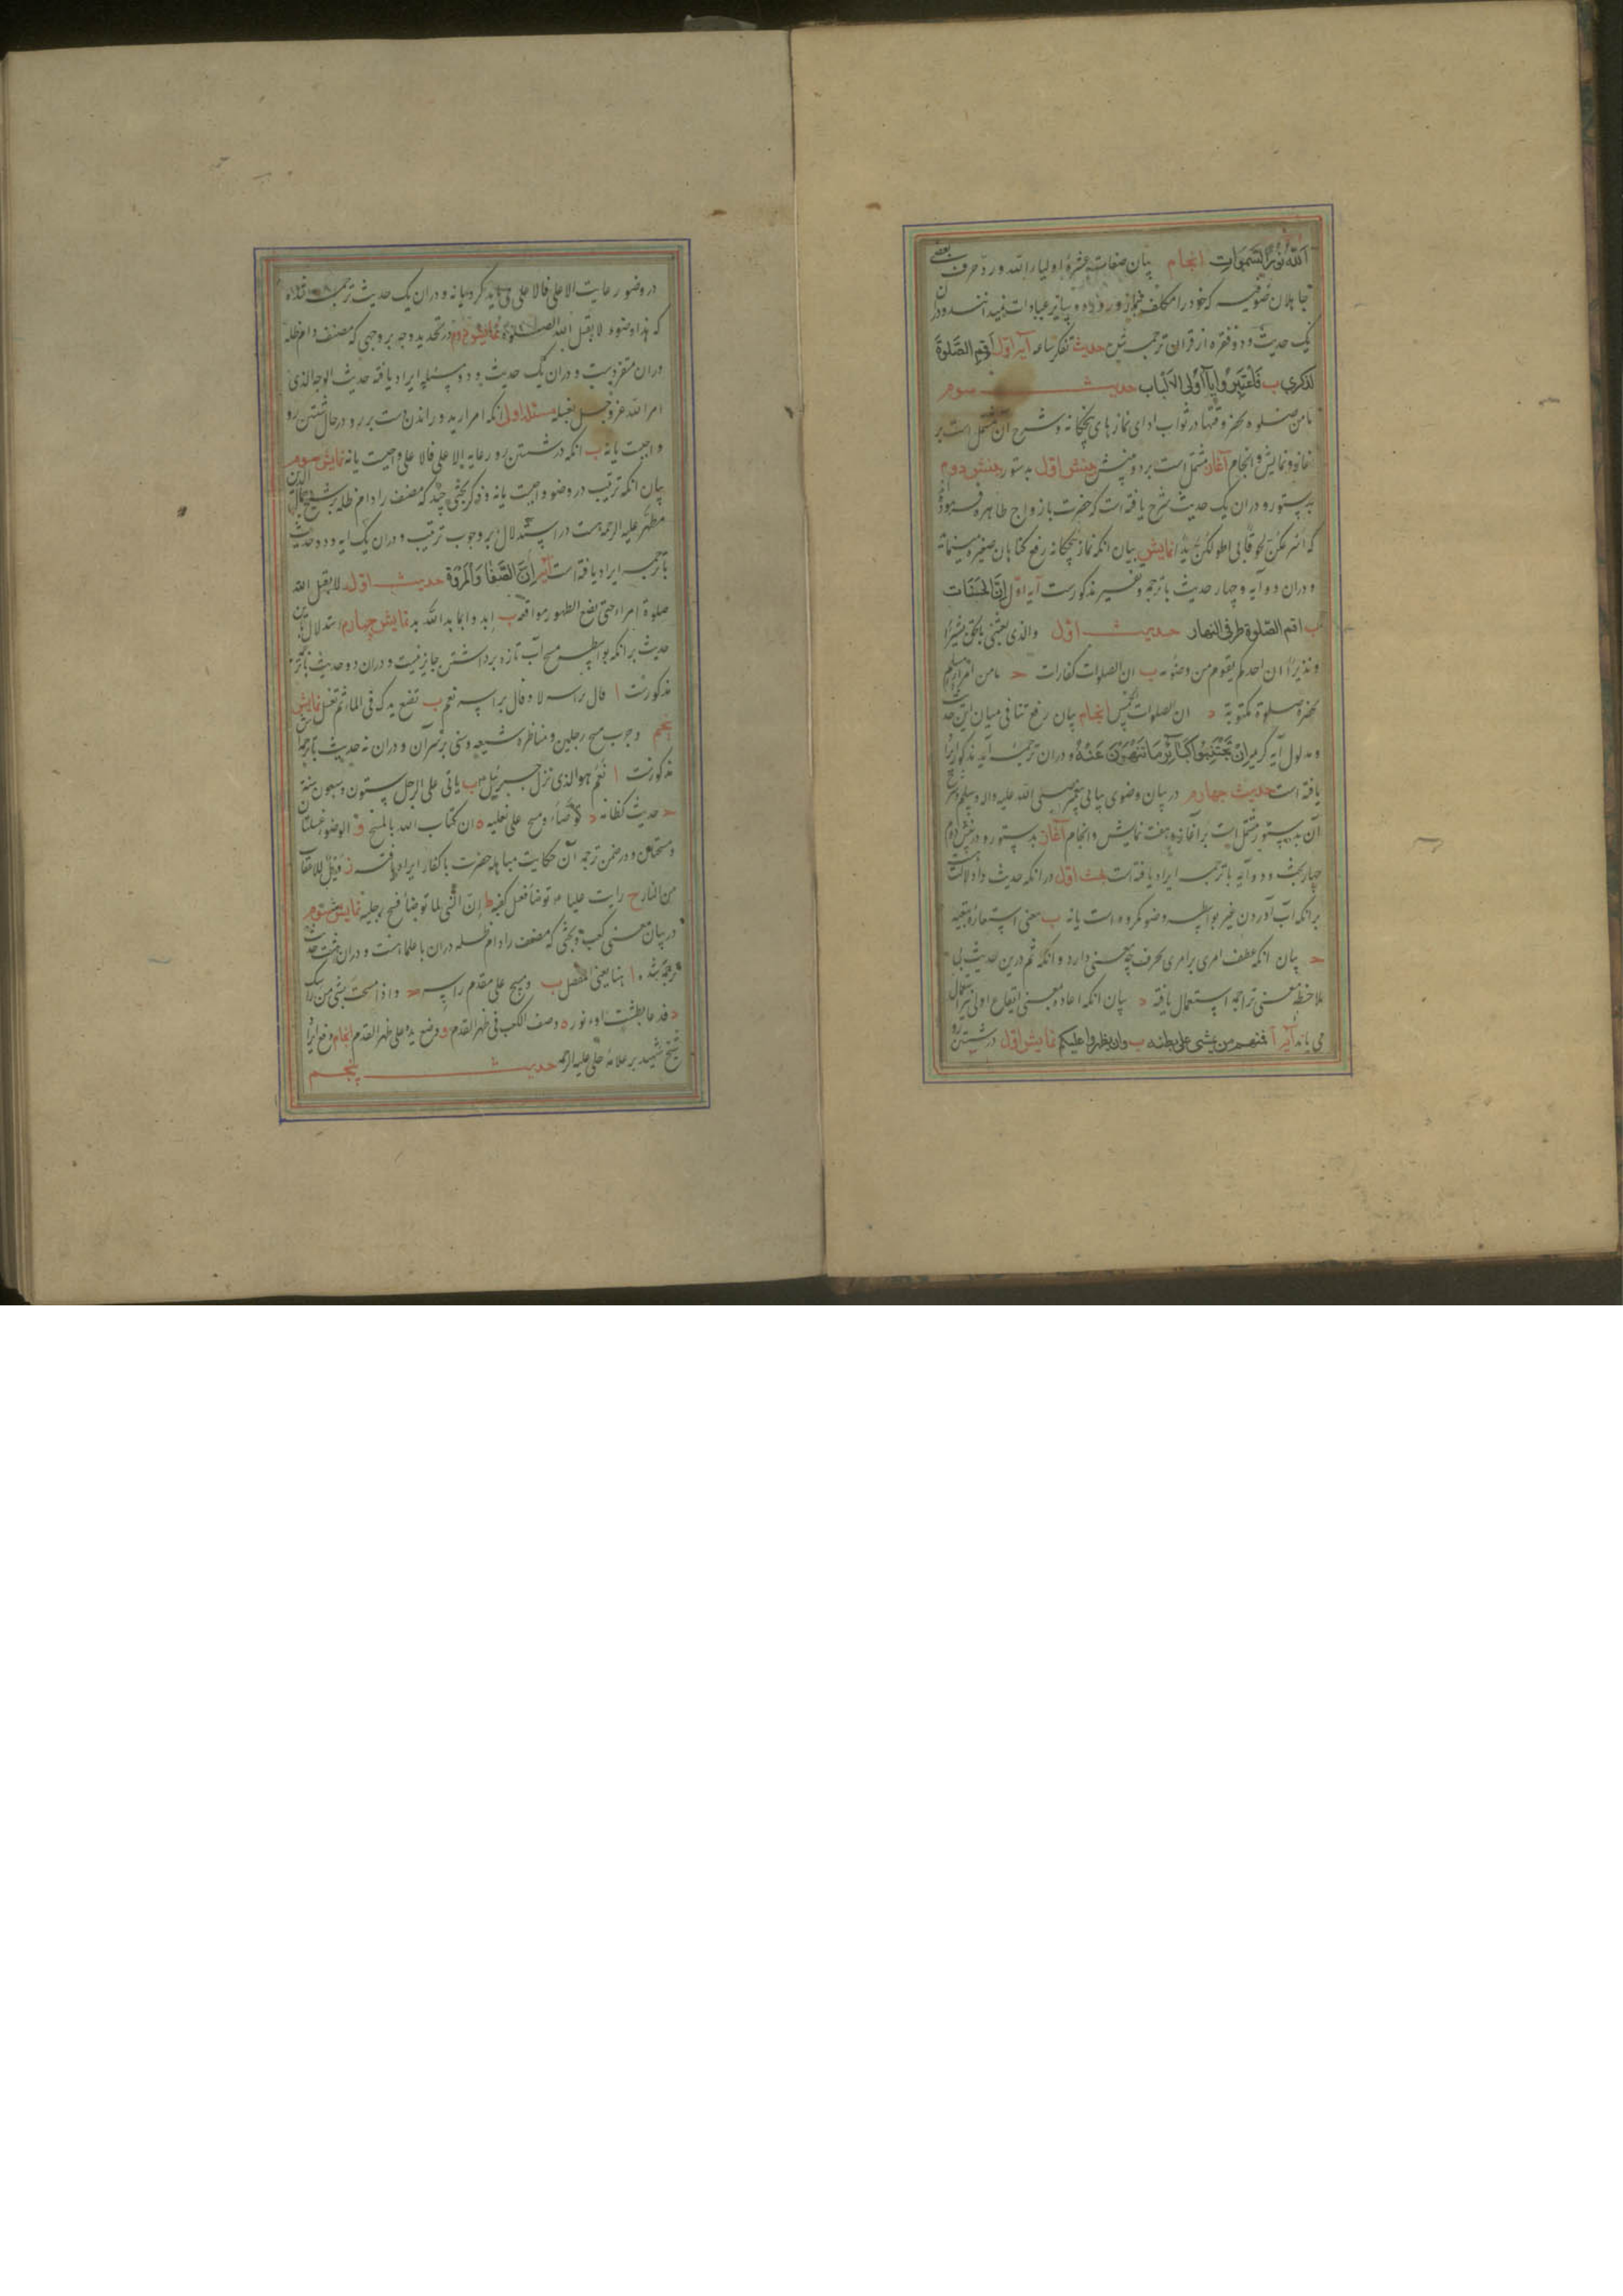 الله نور السموات انجام بیان صفات عشرهٔ اولیاء الله و رد حرف بعضی
جاهلان صوفیه که خود را مکلف بنماز و روزه و سایر عبادات نمیدانند و دران
یک حدیث و دو فقره از قران ترجمه شرح حدیث تفکر ساعه آیه اول اقم الصلوة
لذکری ب فاعتبروا یا اولی الالباب حدیث سوم
ما من صلوة یحضر وقتها در ثواب ادای نمازهای پنجگانه و شرح آن مشتمل است بر
اغاز و نمایش و انجام آغاز مشتمل است بر دو منبش منبش اول بدستور منبش دوم
بدستور و دران یک حدیث شرح یافته است که حضرت بازواج طاهره فرموده
که اسرعکن لحوقا بی اطولکن یدا نمایش بیان انکه نماز پنجگانه رفع گناهان صغیره مینماید
و دران دو آیه و چهار حدیث با ترجمه و تفسیر مذکورست آیه اول ان الحسنات
ب اقم الصلوة طرفی النهار حدیث اول والذی بعثنی بالحق بشیرا
و نذیرا ان احدکم لیقوم من وضوئه ب ان الصلوات کفارات ح ما من امرء مسلم
یحضره صلوة مکتوبة د ان الصلوات الخمس انجام بیان رفع تنافی میان این حدیث
و مدلول آیه کریمه ان تجتنبوا کبائر ما تنهون عنه و دران ترجمه آیه مذکور ایراد
یافته است حدیث چهارم در بیان وضوی بیانی پیغمبر صلی الله علیه واله وسلم و شرح
آن بدستور مشتمل است بر آغاز و هفت نمایش و انجام آغاز بدستور و در منبش دوم
چهار بحث و دو آیه با ترجمه ایراد یافته است بحث اول در انکه حدیث را دلالت
بر انکه آب آوردن غیر بواسطه وضو مکروه است یا نه ب معنی استعارهٔ تبعیه
ح بیان انکه عطف امری بر امری بحرف چه معنی دارد و انکه ثم درین حدیث بی
ملاحظه معنی تراخی استعمال یافته د بیان انکه اعاده بمعنی ایقاع اولی نیز استعمال
می یابد آیه ا فمنهم من یمشی علی بطنه ب وان یظهروا علیکم نمایش اول در شستن رو
در وضو رعایت الاعلی فالاعلی می باید کرد یا نه و دران یک حدیث ترجمه شده
که هذا وضوء لا یقبل الله الصلوة نمایش دوم در تحدید وجه بر وجهی که مصنف دام ظله
دران متفردست و دران یک حدیث و دو مسئله ایراد یافته حدیث الوجه الذی
امر الله عز وجل بغسله مسئله اول انکه امرار ید و راندن دست بر رو در حال شستن رو
واجبست یا نه ب انکه در شستن رو رعایه الاعلی فالاعلی واجبست یا نه نمایش سوم
بیان انکه ترتیب در وضو واجبست یا نه و ذکر بحثی چند که مصنف را دام ظله بر شیخ جمال الدین
مطهر علیه الرحمه هست در استدلال بر وجوب ترتیب و دران یک ایه و دو حدیث
با ترجمه ایراد یافته است آیه ان الصفا والمروة حدیث اول لا یقبل الله
صلوة امرء حتی یضع الطهور مواقعه ب ابدوا بما بدا الله به نمایش چهارم استدلال باین
حدیث بر انکه بواسطه مسح آب تازه برداشتن جایز نیست و دران دو حدیث با ترجمه
مذکورست ا قال براسه لا وقال براسه نعم ب تضع یدک فی الماء ثم تغسل نمایش
پنجم وجوب مسح رجلین و مناظره شیعه و سنی بر سر آن و دران نه حدیث با ترجمه
مذکورست ا نعم هو الذی نزل جبرئیل به ب یاتی علی الرجل ستون وسبعون سنة
ح حدیث کظامه د توضأ ومسح علی نعلیه ه ان کتاب الله بالمسح و الوضوء غسلتان
ومسحتان و در ضمن ترجمه آن حکایت مباهله حضرت با کفار ایراد یافته ز ویل للاعقاب
من النار ح رایت علیا ع م توضأ فغسل کفیه ط ان النبی لما توضأ فمسح رجلیه نمایش ششم
در بیان معنی کعب و بحثی که مصنف را دام ظله دران با علما هست و دران هفت حدیث
ترجمه شده ا هنا یعنی المفصل ب ومسح علی مقدم راسه ح واذا مسحت بشیء من راسک
د فدعا بطشت او تور ه وصف الکعب فی ظهر القدم و وضع یده علی ظهر القدم انجام رفع ایراد
شیخ شهید بر علامهٔ حلی علیه الرحمه حدیث پنجم